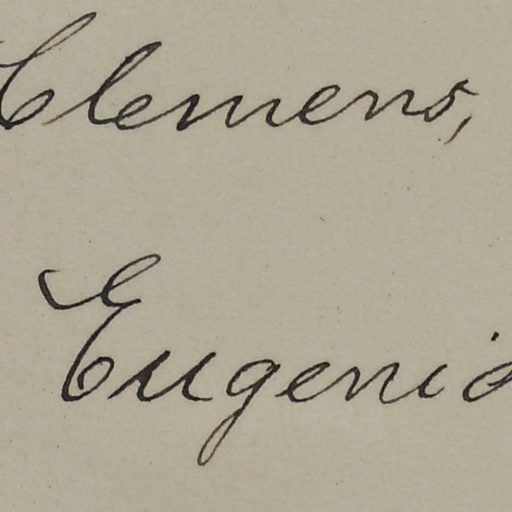 Clemens,
Eugenia